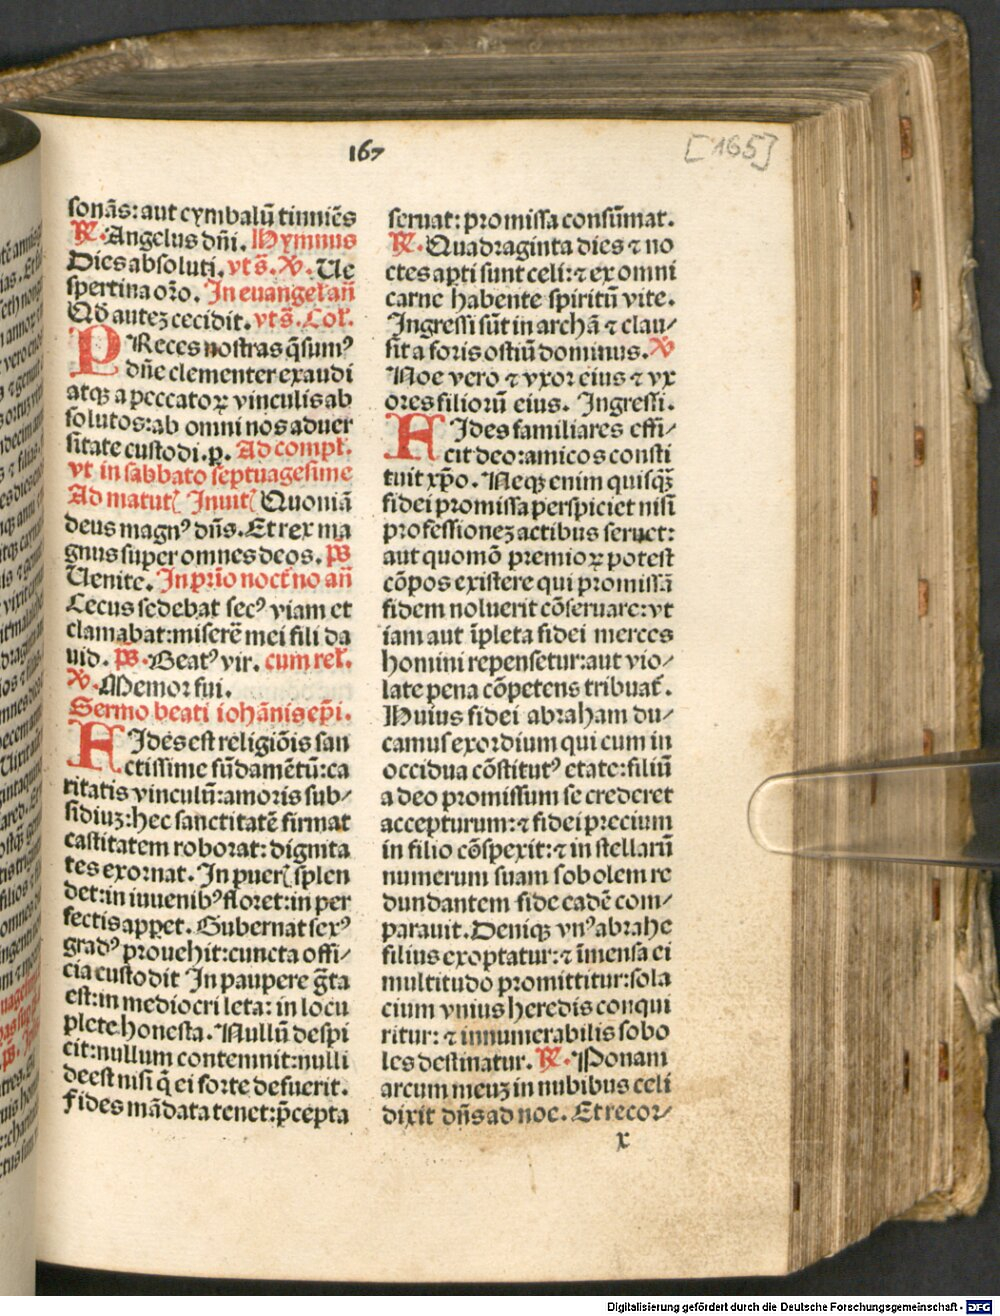 167
[165]
sonãs: aut cymbalũ tinniẽs
℟. Angelus dñi. Hymnus
Dies absoluti. vt sͣ. ℣. Ue
spertina oꝛo. In euangeł añ
Qđ autez cecidit. vt sͣ. Coł.
PReces nostras q̃sumꝰ
dñe clementer exaudi
atqꝫ a peccatoꝝ vinculis ab
solutos: ab omni nos aduer
sitate custodi. p. Ad compł.
vt in sabbato septuagesime
Ad matut͛ Inuit͛ Quoniã
deus magnꝰ dñs. Et rex ma
gnus super omnes deos. p̃s
Uenite. In prĩo noct̃no añ
Cecus sedebat secꝰ viam et
clamabat: miserẽ mei fili da
uid. p̃s. Beatꝰ vir. cum reł.
℣. Memor fui.
Sermo beati iohãnis ep̃i.
FIdes est religiõis san
ctissime fũdamẽtũ: ca
ritatis vinculũ: amoris sub⸗
sidiuꝫ: hec sanctitatẽ firmat
castitatem roborat: dignita
tes exornat. In puer͛ splen
det: in iuuenibꝰ floret: in per
fectis appet. Gubernat sexꝰ
gradꝰ prouehit: cuncta offi⸗
cia custodit In paupere g̃ta
est: in mediocri leta: in locu
plete honesta. Nullũ despi
cit: nullum contemnit: nulli
deest nisi q̃ ei forte defuerit.
Fides mãdata tenet: p̃cepta
seruat: promissa consũmat.
℟. Quadraginta dies ⁊ no
ctes apti sunt celi: ⁊ ex omni
carne habente spiritũ vite.
Ingressi sũt in archã ⁊ clau⸗
sit a foris ostiũ dominus. ℣
Noe vero ⁊ vxoꝛ eius ⁊ vx
ores filiorũ eius. Ingressi.
FIdes familiares effi⸗
cit deo: amicos consti
tuit xp̃o. Neqꝫ enim quisq̃ꝫ
fidei promissa perspiciet nisi
professionez actibus seruet:
aut quomõ premioꝝ potest
cõpos existere qui promissã
fidem noluerit cõseruare: vt
iam aut ĩpleta fidei merces
homini repensetur: aut vio⸗
late pena cõpetens tribuat͛.
Huius fidei abraham du⸗
camus exordium qui cum in
occidua cõstitutꝰ etate: filiũ
a deo promissum se crederet
accepturum: ⁊ fidei precium
in filio cõspexit: ⁊ in stellarũ
numerum suam sobolem re
dundantem fide eadẽ com⸗
parauit. Deniqꝫ vnꝰ abrahe
filius exoptatur: ⁊ ĩmensa ei
multitudo promittitur: sola
cium vnius heredis conqui
ritur: ⁊ innumerabilis sobo
les destinatur. ℟. Ponam
arcum meuꝫ in nubibus celi
dixit dñs ad noe. Et recor⸗
x
Digitalisierung gefördert durch die Deutsche Forschungsgemeinschaft - DFG